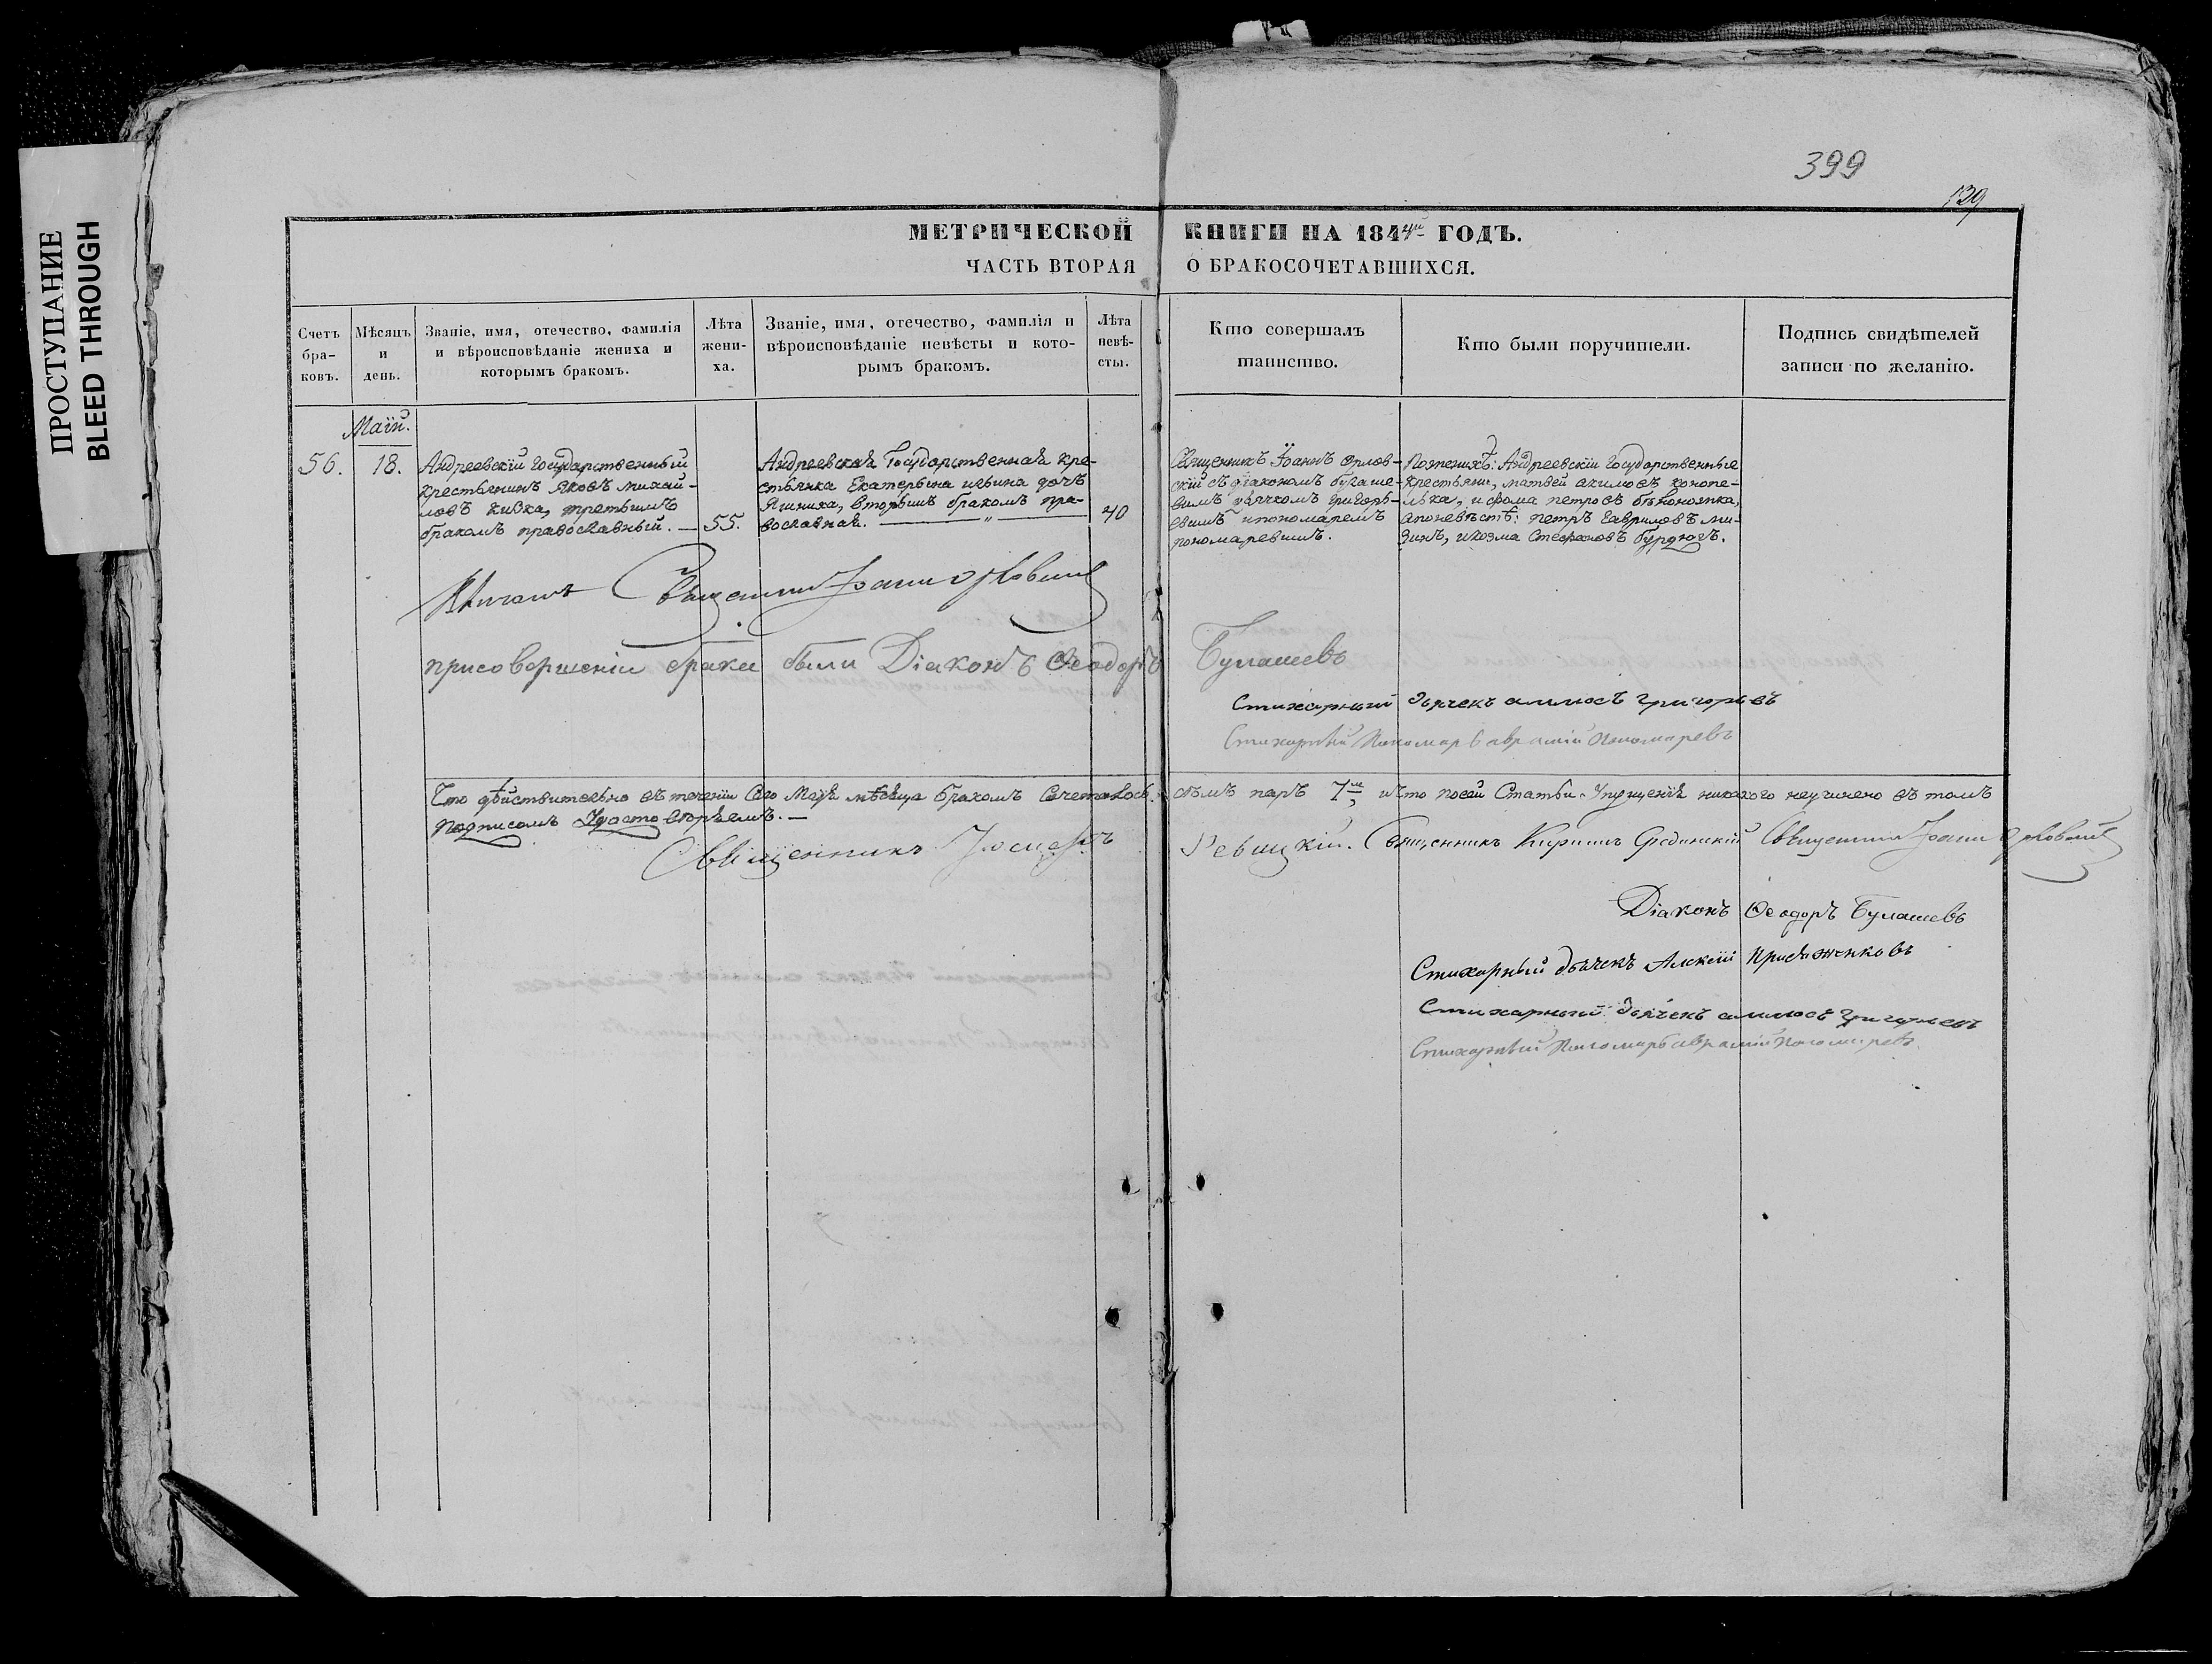 ПРОСТУПАНИЕ
BLEED THROUGH
399
139
МЕТРИЧЕСКОЙ КНИГИ НА 1844й ГОДЪ.
ЧАСТЬ ВТОРАЯ О БРАКОСОЧЕТАВШИХСЯ.
Счетъ
бра-
ковъ.
Мѣсяцъ
и
день.
Званіе, имя, отечество, фамилія
и вѣроисповѣданіе жениха и
которымъ бракомъ.
Лѣта
жени-
ха.
Званіе, имя, отечество, фамилія и
вѣроисповѣданіе невѣсты и кото-
рымъ бракомъ.
Лѣта
невѣ-
сты.
Кто совершалъ
таинство.
Кто были поручители.
Подпись свидѣтелей
записи по желанію.
Маій.
56.
18.
Андреевскій государственный
крестьянинъ Яковъ михай-
ловъ третьимъ
бракомъ православный.
55.
Андреевская Государственная кре-
стьянка Екатерына ильина дочъ
вторымъ бракомъ пра-
вославная.
40
Священникъ Іоаннъ орлов-
скій съ діакономъ булаше-
вимъ дьячкомъ григорь-
евимъ ипономаремъ
пономаревимъ.
Пожениху: Андреевскіи Государственные
крестьяни, матвей акимовъ конопа-
лька, и фома петровъ
апоневѣстѣ: петръ Гавриловъ ми-
зинъ, икозма Стефановъ бурдюгъ.
Вѣнчалъ Священникъ Іоаннъ Орловскій
присовершеніи брака были Діаконъ Ѳеодоръ Булашевъ
Стихарный дьячекъ амосъ григорьевъ
Стихарный Пономарь аврамій Пономаревъ
Что дѣйствительно въ теченіи Сего Маія мѣсяца бракомъ Сочеталось семъ паръ 7м, ичто посей Статьи упущенія никакого неучинено въ томъ
подписомъ Удостовѣряемъ.
Священникъ Іосифъ Ревицкій. Священникъ Кириллъ Срединскій Священникъ Іоаннъ Орловскій
Діаконъ Ѳеодоръ Булашевъ
Стихарный дьячекъ Алексій
Стихарный дьячекъ амосъ григорьевъ
Стихарный Пономарь аврамій Пономаревъ